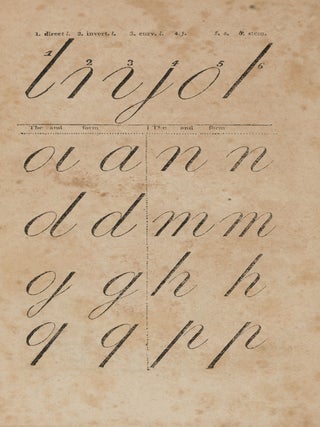 1. direct l. 2. invert. l. 3. curv. l. 4. j. 5. o. 6. stem.
1 2 3 4 5 6
l n j o l
The and form The and form
a a n n
d d m m
g g h h
q q p p